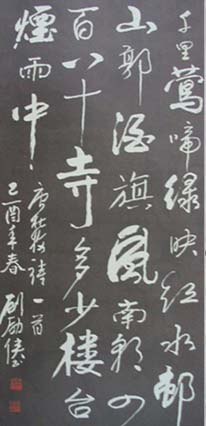 千里鶯啼绿映红水邨
山郭酒旗風南朝四
百八十寺多少楼台
煙雨中
唐杜牧诗一首
乙酉年春